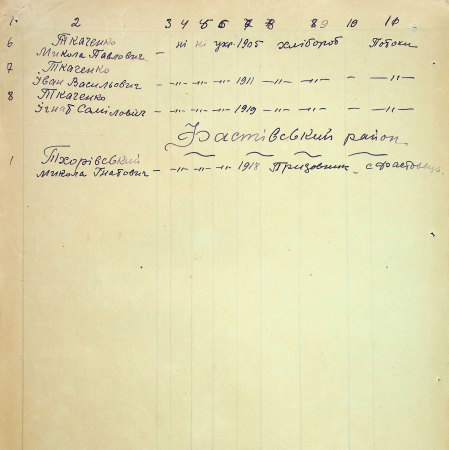 1. 2 3 4 5 6 7 8 9 10 11
6 Ткаченко Микола Павлович – ні ні укр. 1905 хлібороб – Потоки
7 Ткаченко
Іван Васильович – -"- -"- -"- 1911 -"- -"- – -"-
8 Ткаченко
Ігнат Самілович – -"- -"- -"- 1919 -"- -"- – -"-
Фастівський район
1 Тхорівський
Микола Гнатович – -"- -"- -"- 1918 Призовник –